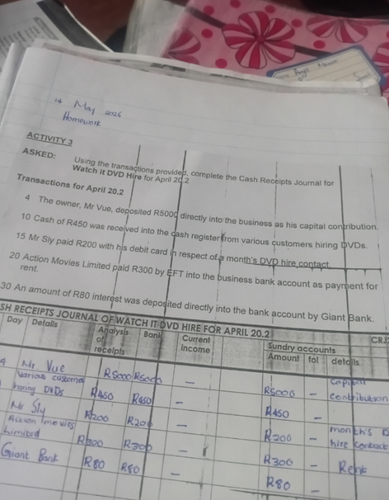 14 May 2026
Homework
ACTIVITY 3
ASKED:
Using the transactions provided, complete the Cash Receipts Journal for
Watch it DVD Hire for April 20.2
Transactions for April 20.2
4 The owner, Mr Vue, deposited R5000 directly into the business as his capital contribution.
10 Cash of R450 was received into the cash register from various customers hiring DVDs.
15 Mr Sly paid R200 with his debit card in respect of a month's DVD hire contact
20 Action Movies Limited paid R300 by EFT into the business bank account as payment for
rent.
30 An amount of R80 interest was deposited directly into the bank account by Giant Bank.
SH RECEIPTS JOURNAL OF WATCH IT DVD HIRE FOR APRIL 20.2
Day Details Analysis of receipts Bank Current Income Sundry accounts
Amount fol details
4 Mr Vue R5000 R5000 – R5000 Capital contribution
Various customer hiring DVDs R450 R450 – R450
Mr Sly R200 R200 – R200 month's hire contract
Limited R300 R300 – R300 – Rent
Giant Bank R80 R80 – R80